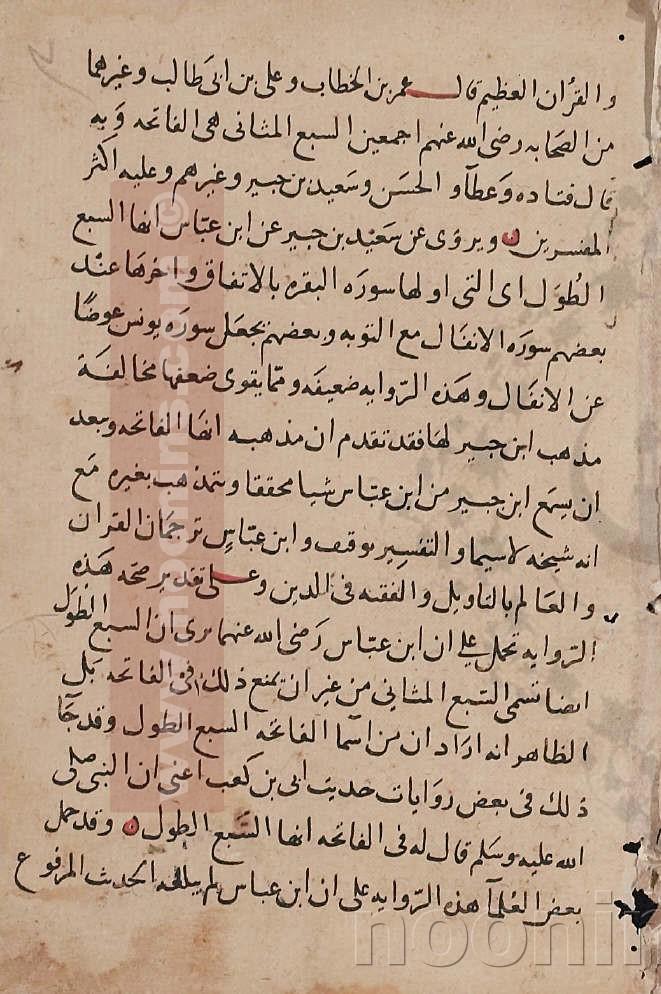 والقرآن العظيم قال عمر بن الخطاب وعلي بن ابي طالب وغيرهما
من الصحابه رضي الله عنهم اجمعين السبع المثاني هي الفاتحه وبه
قال قتاده وعطآ والحسن وسعيد بن جبير وغيرهم وعليه اكثر
المفسرين ويروى عن سعيد بن جبير عن ابن عباس انها السبع
الطول اى التي اولها سورة البقره بالاتفاق واخرها عند
بعضهم سورة الانفال مع التوبه وبعضهم يجعل سورة يونس عوضًا
عن الانفال وهذه الروايه ضعيفه ومما يقوى ضعفها مخالفة
مذهب ابن جبير لها فقد تقدم ان مذهبه انها الفاتحه وبعد
ان يسمع ابن جبير من ابن عباس شيا محققا ويتمذهب بغيره مع
انه شيخه لاسيما والتفسير توقيف وابن عباس ترجمان القران
والعالم بالتاويل والفقه في الدين وعلى تقدير صحه هذه
الروايه تحمل على ان ابن عباس رضي الله عنهما يرى ان السبع الطول
ايضا تسمى السبع المثاني من غير ان يمنع ذلك في الفاتحه بل
الظاهر انه اراد ان من اسما الفاتحه السبع الطول وقد جآ
ذلك في بعض روايات حديث ابي بن كعب اعني ان النبي صلى
الله عليه وسلم قال له في الفاتحه انها السبع الطول وقد حمل
بعض العلمآ هذه الروايه على ان ابن عباس لم يبلغه الحديث المرفوع
www.noonins.com ©
noonin